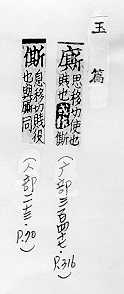 玉篇
廝 思移切使也
賤也或作㒋
(广部三百四十七·P.316)
㒋 息移切賤役
也與廝同
(人部二十三·P.70)